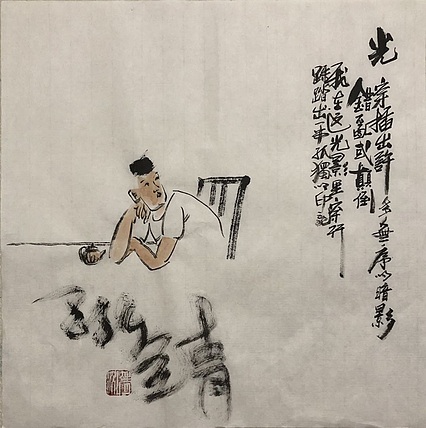 光
穿插出許多無序的暗影
錯亂或顛倒
我在這光影里穿行
踩踏出一串孤獨的印記